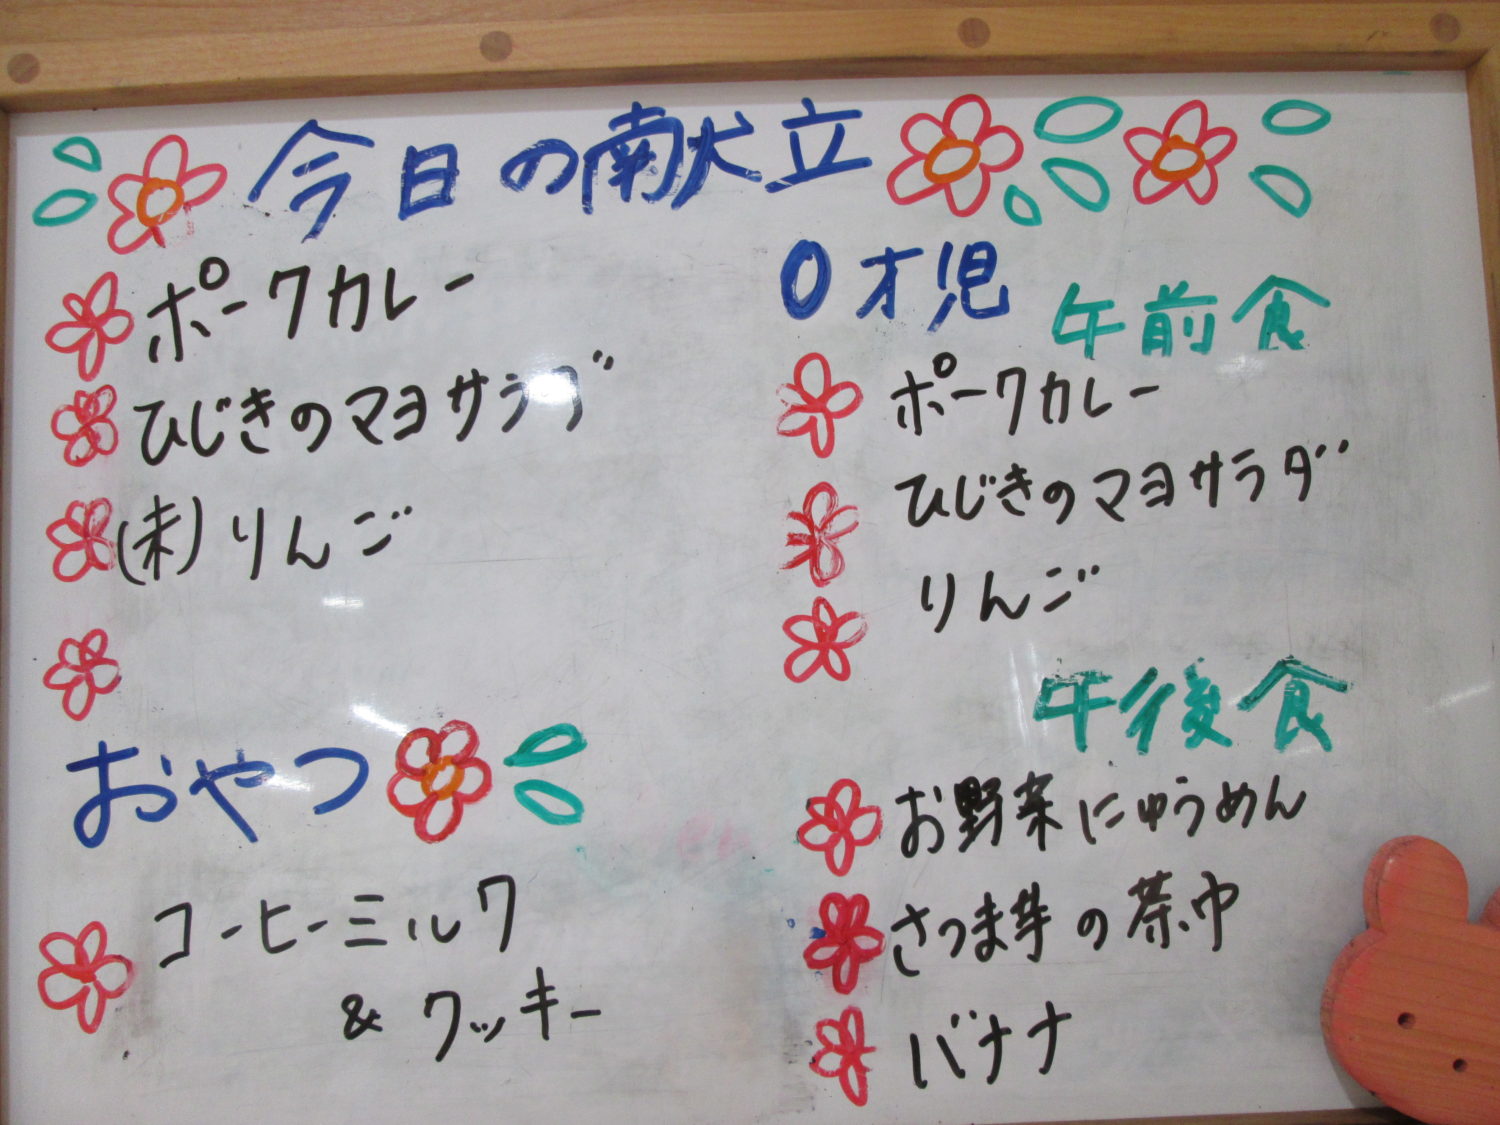 今日の献立
ポークカレー
ひじきのマヨサラダ
(未)りんご
おやつ
コーヒーミルク
& クッキー
0才児
午前食
ポークカレー
ひじきのマヨサラダ
りんご
午後食
お野菜にゅうめん
さつま芋の茶巾
バナナ